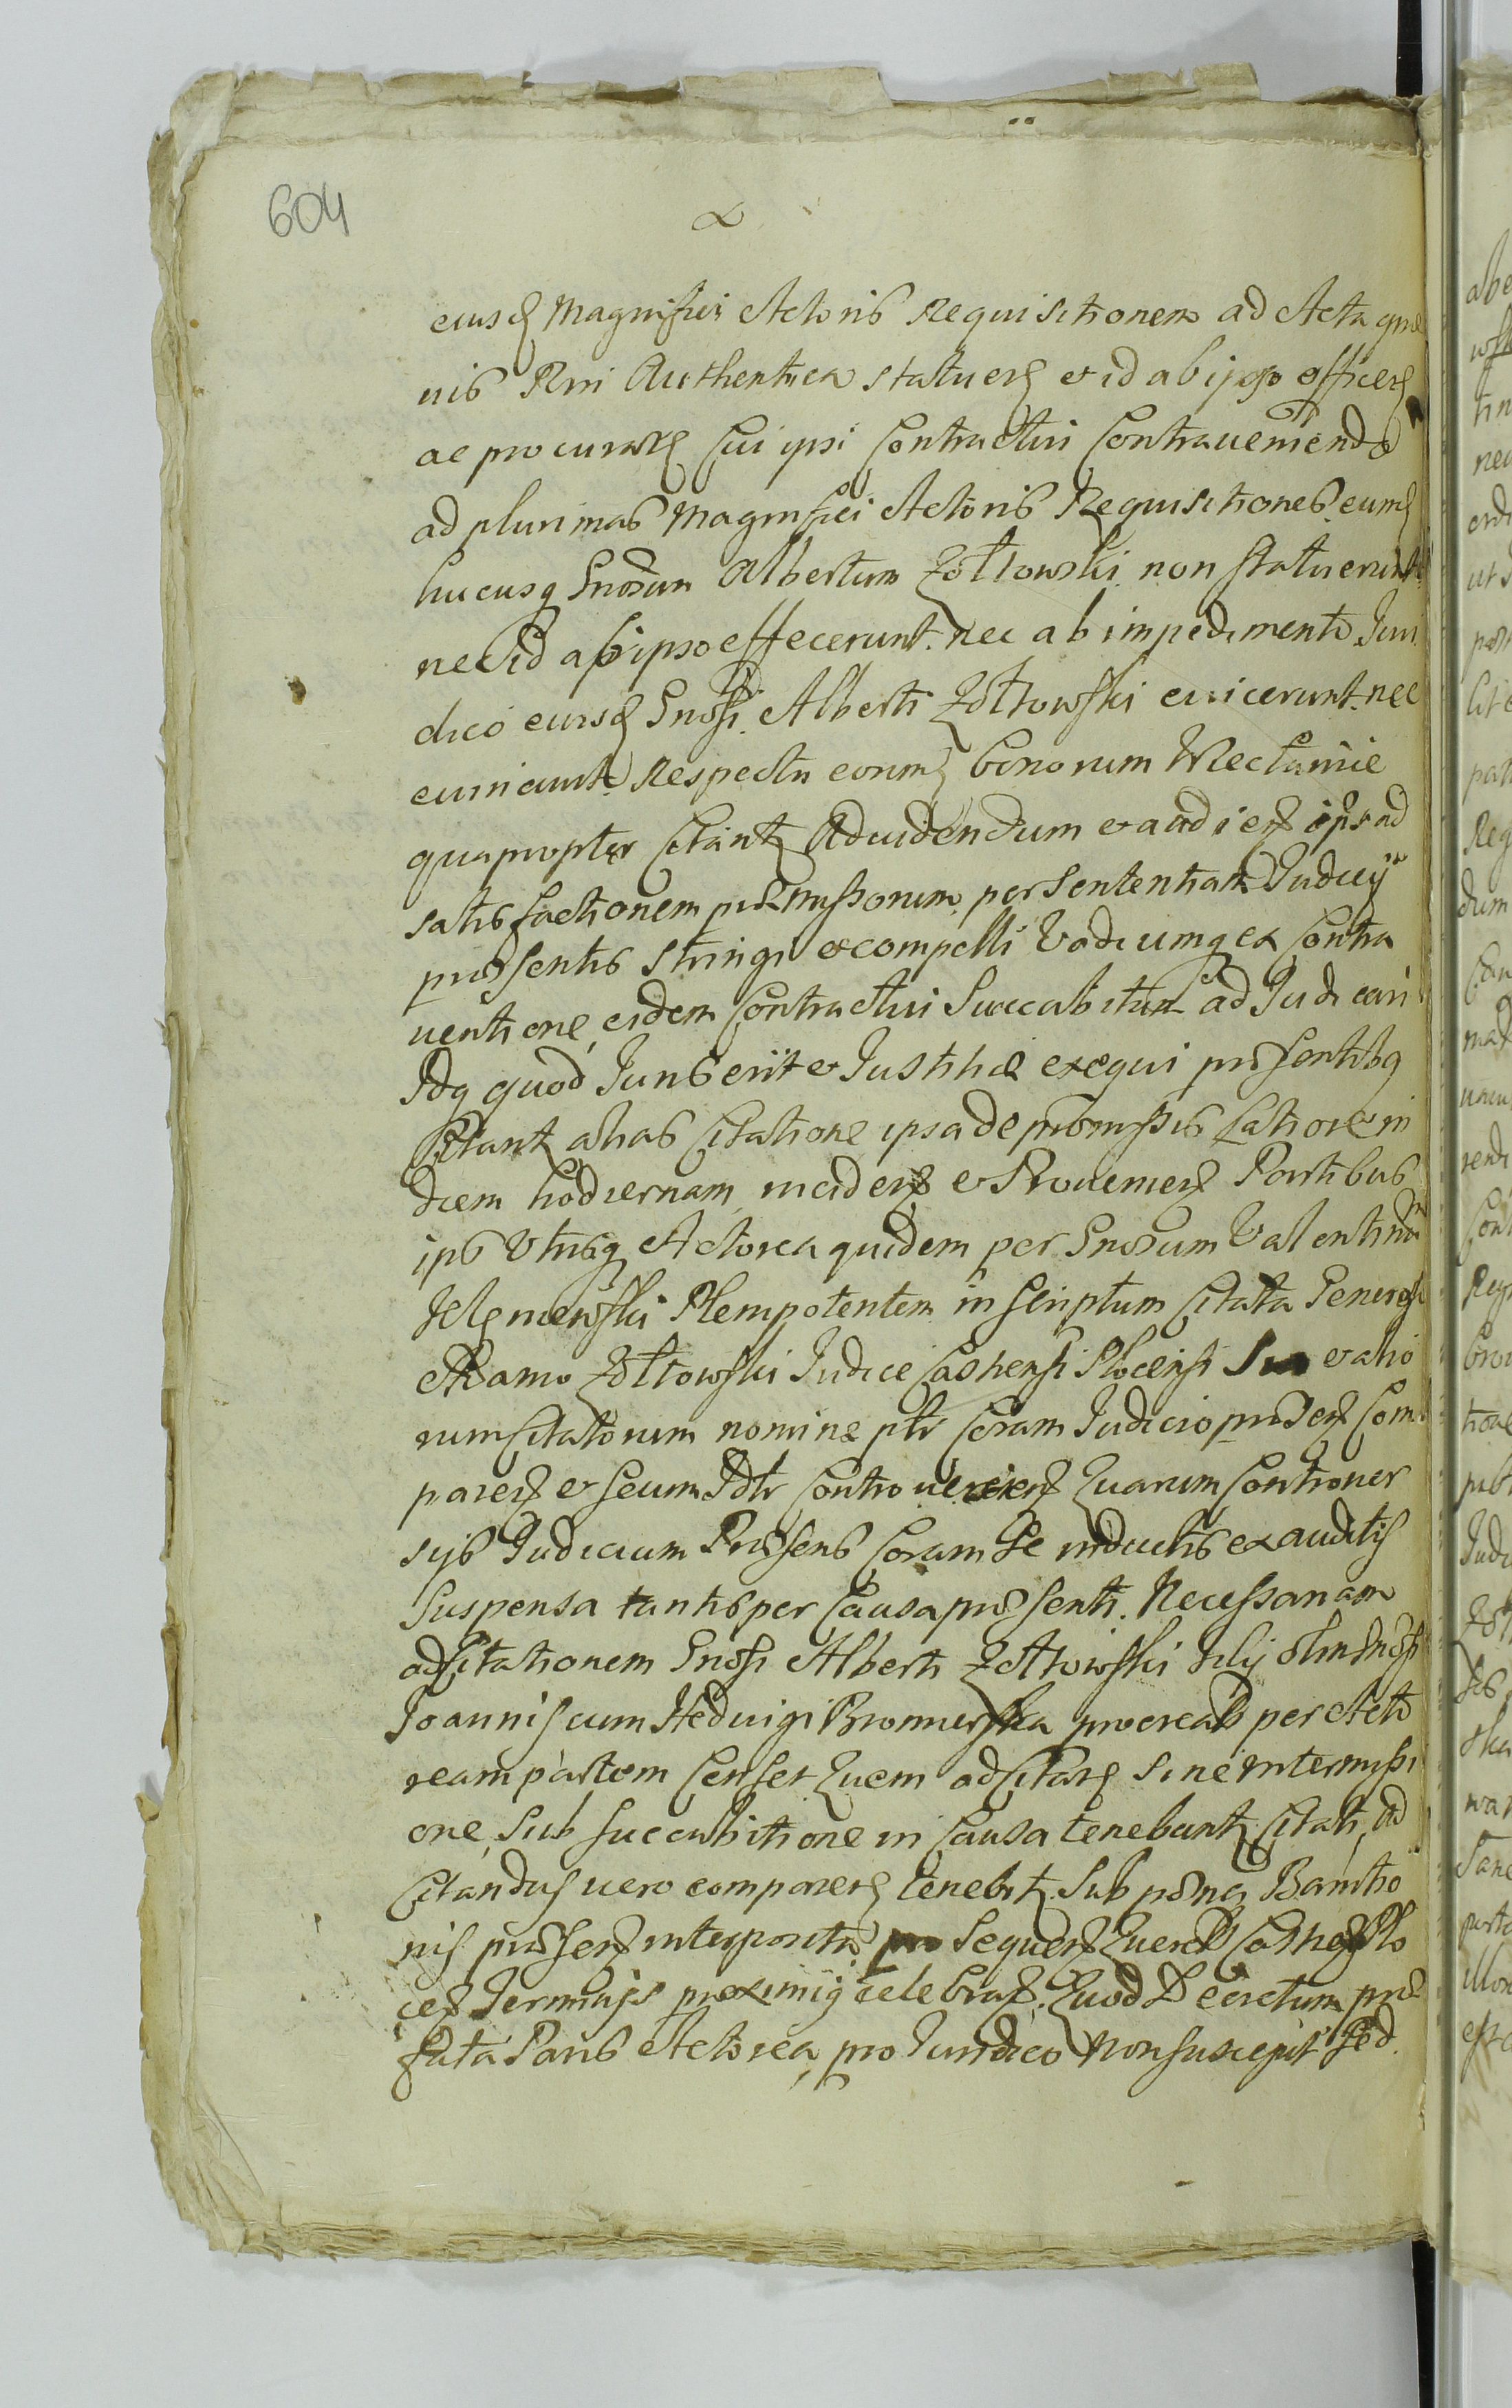 604
eiusd Magnifici Actoris Requisitionem ad Acta quæ
uis Rni Authentica statuere et id ab ipso efficere
ac procurare Cui ipsi Contractui Contraueniendo
ad plurimas Magnifici Actoris Requisitiones eund
hucusq Gnosum Albertum Zołtowski non statuerunt
nec id ab ipso effecerunt nec ab impedimento Iuri
dico eiusd Gnosi Alberti Zołtowski euicerunt nec
euincunt Respectu eorund bonorum Mlectarnie
quapropter Citant Aduidendum et audiend ips ad
satisfactionem præmissorum per Sententiam Iudicij
præsentis stringi et compelli Vadiumq ex Contra
uentione eidem Contractui Succubitum ad Iudicari
Idq quod Iuris erit et Iustitiæ exequi præsentibq
Citant alias Citatione ipsa de præmissis Latiore in
diem hodiernam inciden et Proueniend Partibus
ips Vtrisq Actorea quidem per Gnosum Valentinum
Plenipotentem in scriptum Citata Generosi
Adamo Zołtowski Iudice Castrensi Plocensi Suo et alio
rum Citatorum nomine ptr Coram Iudicio præsen Com
paren et secum Idtr Controuersien Quarum Controuer
sijs Iudicium Præsens Coram se inductis exauditis
Suspensa tantisper Causa præsenti Necessariam
adCitationem Gnosi Alberti Zołtowski filij olim Gnosi
Ioannis cum Heduigi Bromierska procreati per Acto
ream partem Censet Quem adCitare sine intermissi
one sub succubitione in Causa tenebunt Citati, ad
Citandus uero comparere tenebit Sub pæna Banitio
nis præsen interposita Sequen Querel Castren Plo
cen Terminis proximiq celebran Quod Decretum præ
fata Pars Actorea pro Iuridico non suscepit Sed